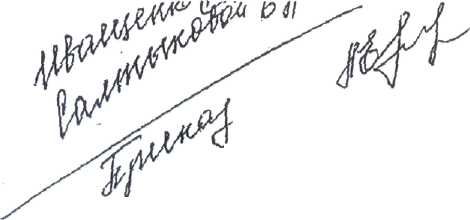 Иващенко С
Салтыковой В П
Приказ